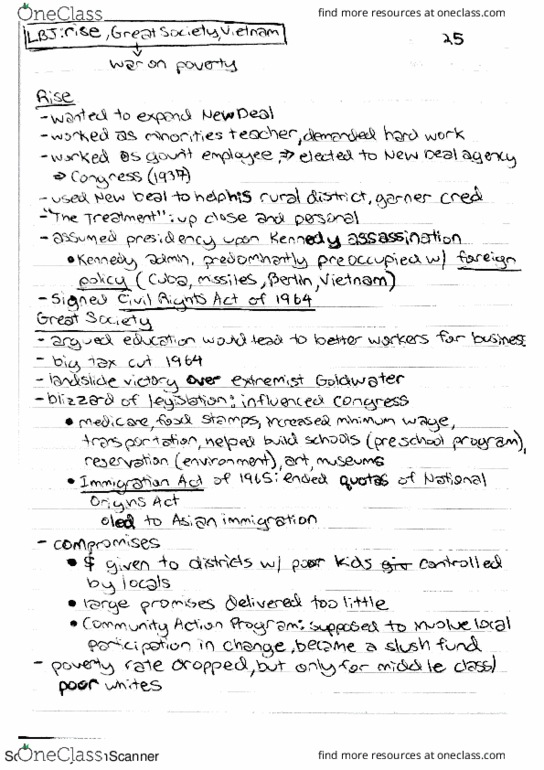 OneClass
find more resources at oneclass.com
LBJ: rise, Great Society, Vietnam
25
war on poverty
Rise
- wanted to expand New Deal
- worked as minorities teacher, demanded hard work
- worked as gov't employee, ⇒ elected to New Deal agency
⇒ Congress (1937)
- used New Deal to help his rural district, garner cred
- "The Treatment": up close and personal
- assumed presidency upon Kennedy assassination
• Kennedy admin. predominantly preoccupied w/ foreign
policy (Cuba, missiles, Berlin, Vietnam)
- Signed Civil Rights Act of 1964
Great Society
- argued education would lead to better workers for business
- big tax cut 1964
- landslide victory over extremist Goldwater
- blizzard of legislation: influenced congress
• medicare, food stamps, increased minimum wage,
transportation, helped build schools (preschool program),
reservation (environment), art, museums
• Immigration Act of 1965: ended quotas of National
Origins Act
o led to Asian immigration
- compromises
• $ given to districts w/ poor kids controlled
by locals
• large promises delivered too little
• Community Action Program: supposed to involve local
participation in change, became a slush fund
- poverty rate dropped, but only for middle class/
poor whites
OneClass
Scanner
find more resources at oneclass.com